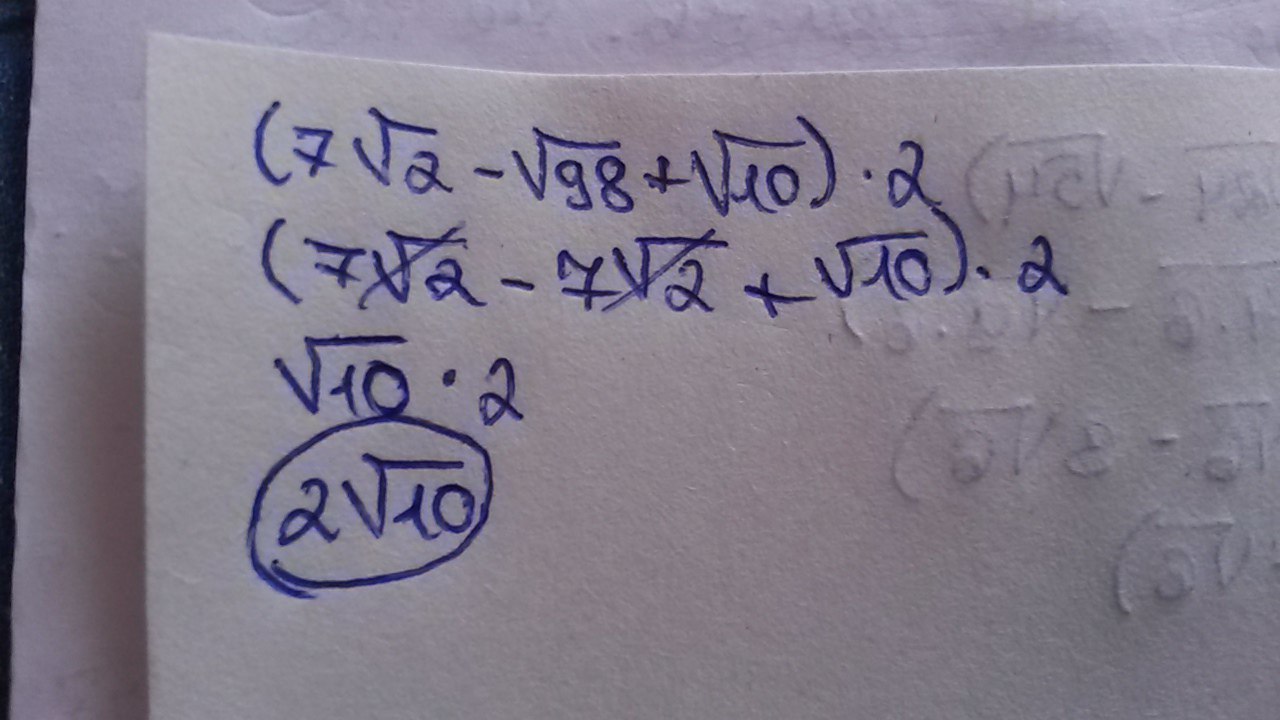 (7√2 - √98 + √10) · 2
(7√2 - 7√2 + √10) · 2
√10 · 2
2√10